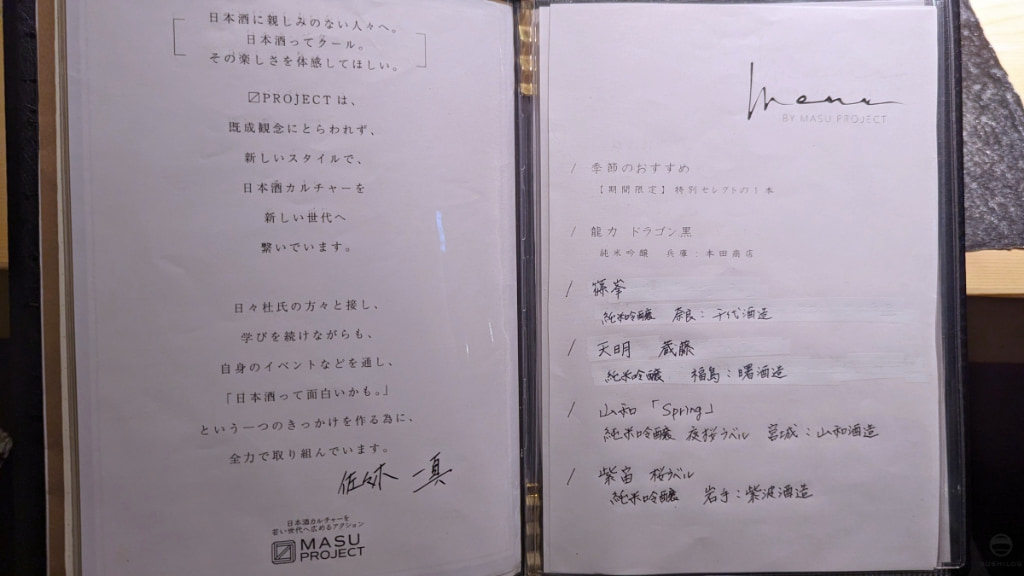 日本酒に親しみのない人々へ。
日本酒ってクール。
その楽しさを体感してほしい。
PROJECTは、
既成観念にとらわれず、
新しいスタイルで、
日本酒カルチャーを
新しい世代へ
繋いでいます。
日々杜氏の方々と接し、
学びを続けながらも、
自身のイベントなどを通し、
「日本酒って面白いかも。」
という一つのきっかけを作る為に、
全力で取り組んでいます。
佐々木 一真
日本酒カルチャーを
若い世代へ広めるアクション
MASU
PROJECT
Menu
BY MASU PROJECT
/ 季節のおすすめ
【期間限定】特別セレクトの1本
/ 龍力 ドラゴン黒
純米吟醸 兵庫:本田商店
/ 篠峯
純米吟醸 奈良:千代酒造
/ 天明 蔵藤
純米吟醸 福島:曙酒造
/ 山和「Spring」
純米吟醸 夜桜ラベル 宮城:山和酒造
/ 紫宙 桜ラベル
純米吟醸 岩手:紫波酒造